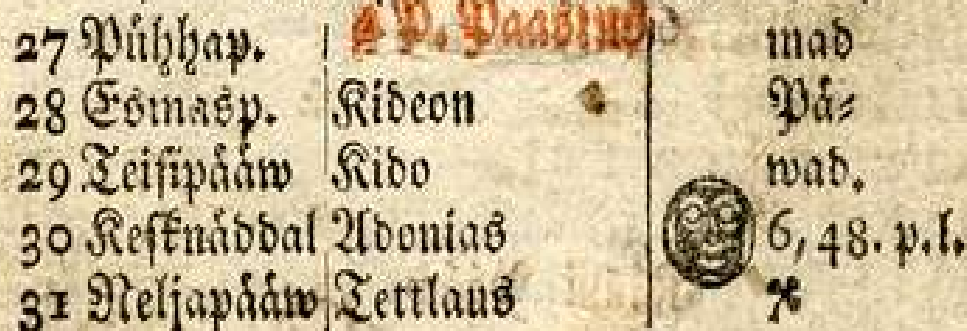 27 Pühhap. P. Paastus mad
28 Esmasp. Kideon Pä⸗
29 Teisipääw Kido wad.
30 Kesknäddal Adonias 6, 48. p.l.
31 Neljapääw Tettlaus